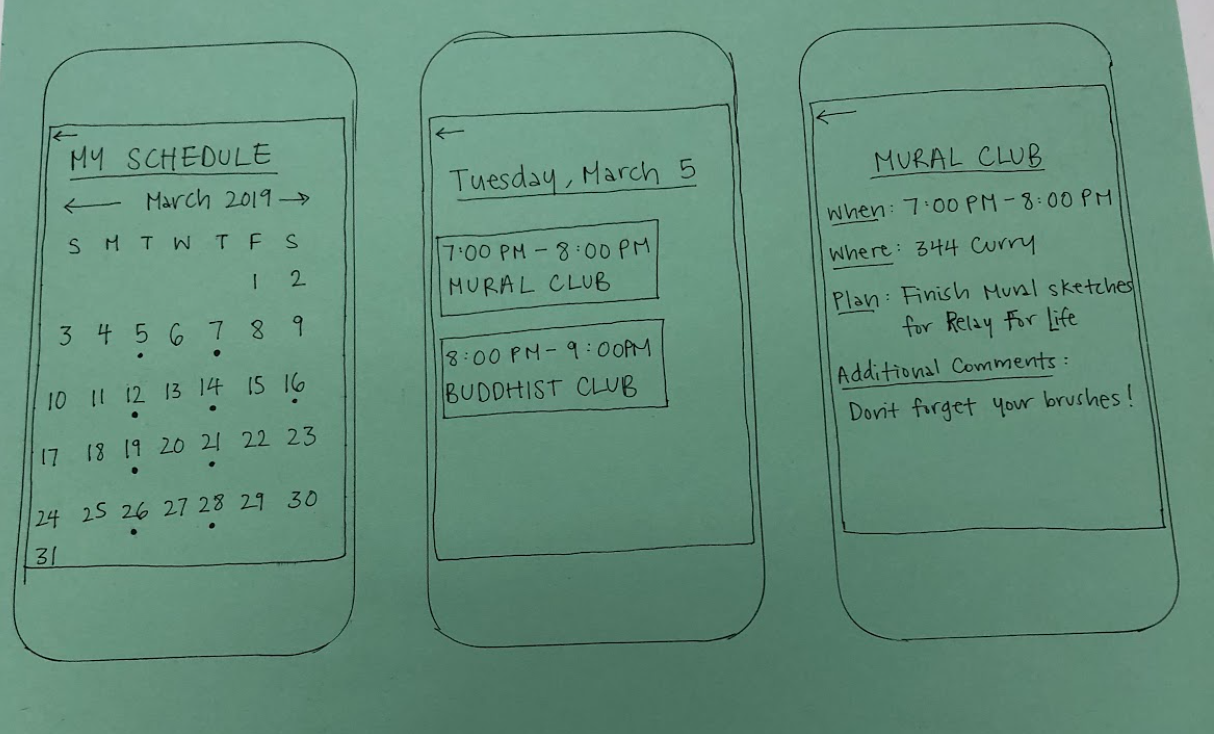 ←
MY SCHEDULE
← March 2019 →
S M T W T F S
1 2
3 4 5 6 7 8 9
10 11 12 13 14 15 16
17 18 19 20 21 22 23
24 25 26 27 28 29 30
31
←
Tuesday, March 5
7:00 PM - 8:00 PM
MURAL CLUB
8:00 PM - 9:00PM
BUDDHIST CLUB
←
MURAL CLUB
When: 7:00 PM - 8:00 PM
Where: 344 Curry
Plan: Finish Mural sketches
for Relay For Life
Additional Comments:
Don't forget your brushes!